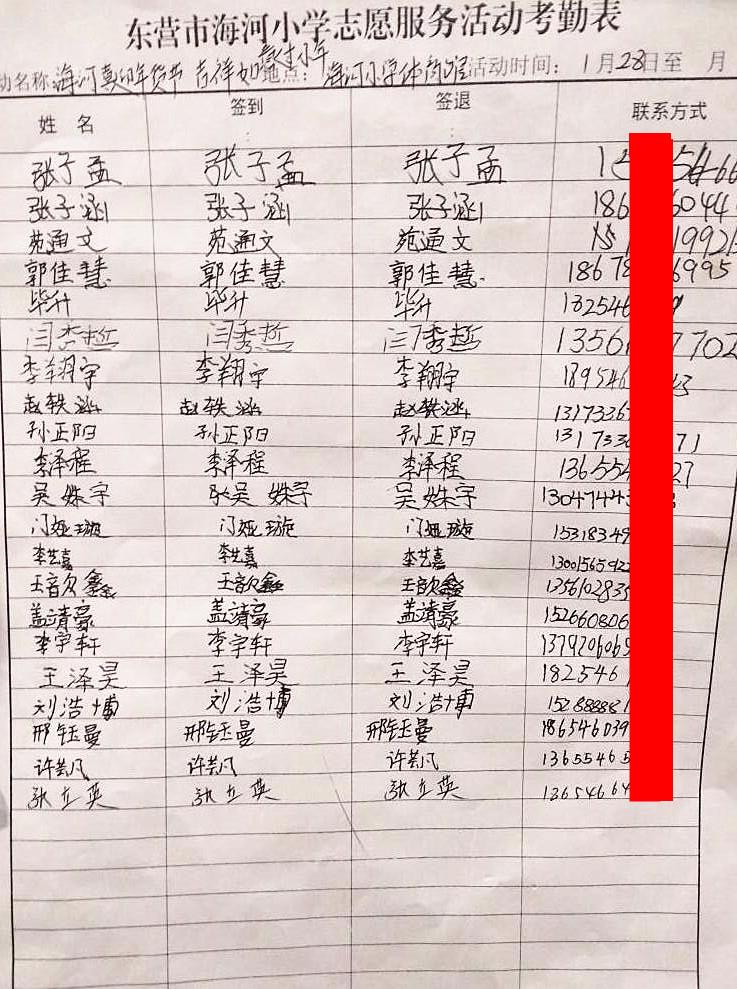 东营市海河小学志愿服务活动考勤表
动名称 海河真的年货节 吉祥如 地点： 海河小学体 活动时间： 1月28日至 月
姓 名 签到 签退 联系方式
张子孟 张子孟 张子孟
张子涵 张子涵 张子涵 186 6044
苑通文 苑通文 苑通文 1992
郭佳慧 郭佳慧 郭佳慧 1867 6995
毕升 毕升 毕升 132546
闫秀哲 闫秀哲 闫秀哲 1356 7702
李翔宇 李翔宇 李翔宇 189546 3
赵轶涵 赵轶涵 赵轶涵 1317336
孙正阳 孙正阳 孙正阳 131733 71
李泽程 李泽程 李泽程 136554 27
吴姝宇 吴姝宇 吴姝宇 13047444
门娅璇 门娅璇 门娅璇 15318349
李艺嘉 李艺嘉 李艺嘉 1300156592
王音欠鑫 王音欠鑫 王音欠鑫 135610283
盖靖豪 盖靖豪 盖靖豪 152660806
李宇轩 李宇轩 李宇轩 137920606
王泽昊 王泽昊 王泽昊 182546
刘浩博 刘浩博 刘浩博 15288888
邢钰曼 邢钰曼 邢钰曼 186546039
许芸凡 许芸凡 许芸凡 13655465
张立英 张立英 张立英 13654664